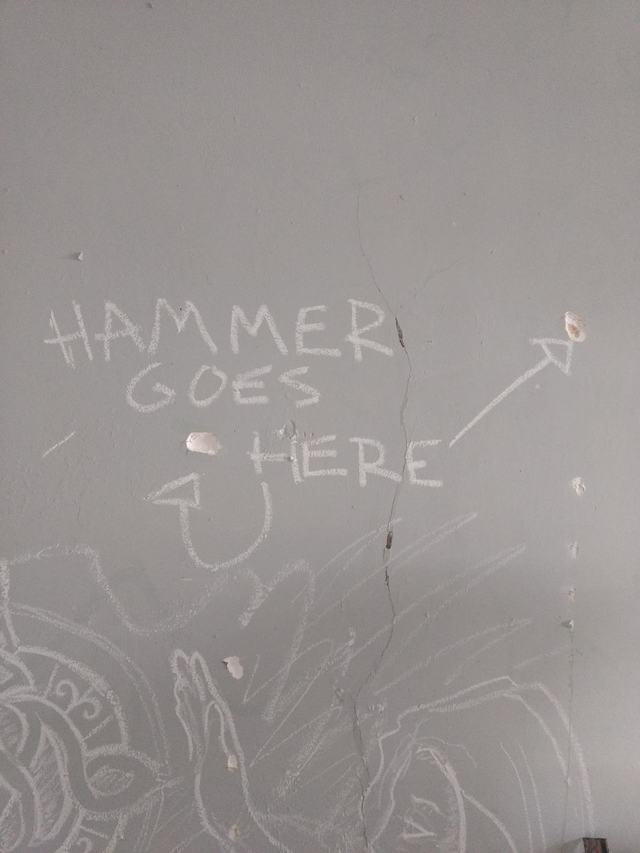 HAMMER
GOES
HERE